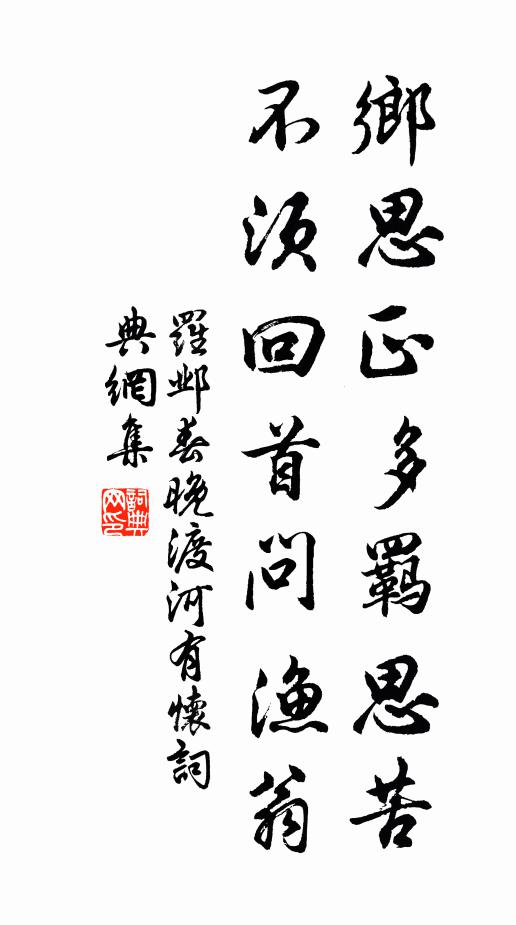 鄉思正多羈思苦
不須回首問漁翁
羅鄴春晚渡河有懷詞
典網集
詞典網印